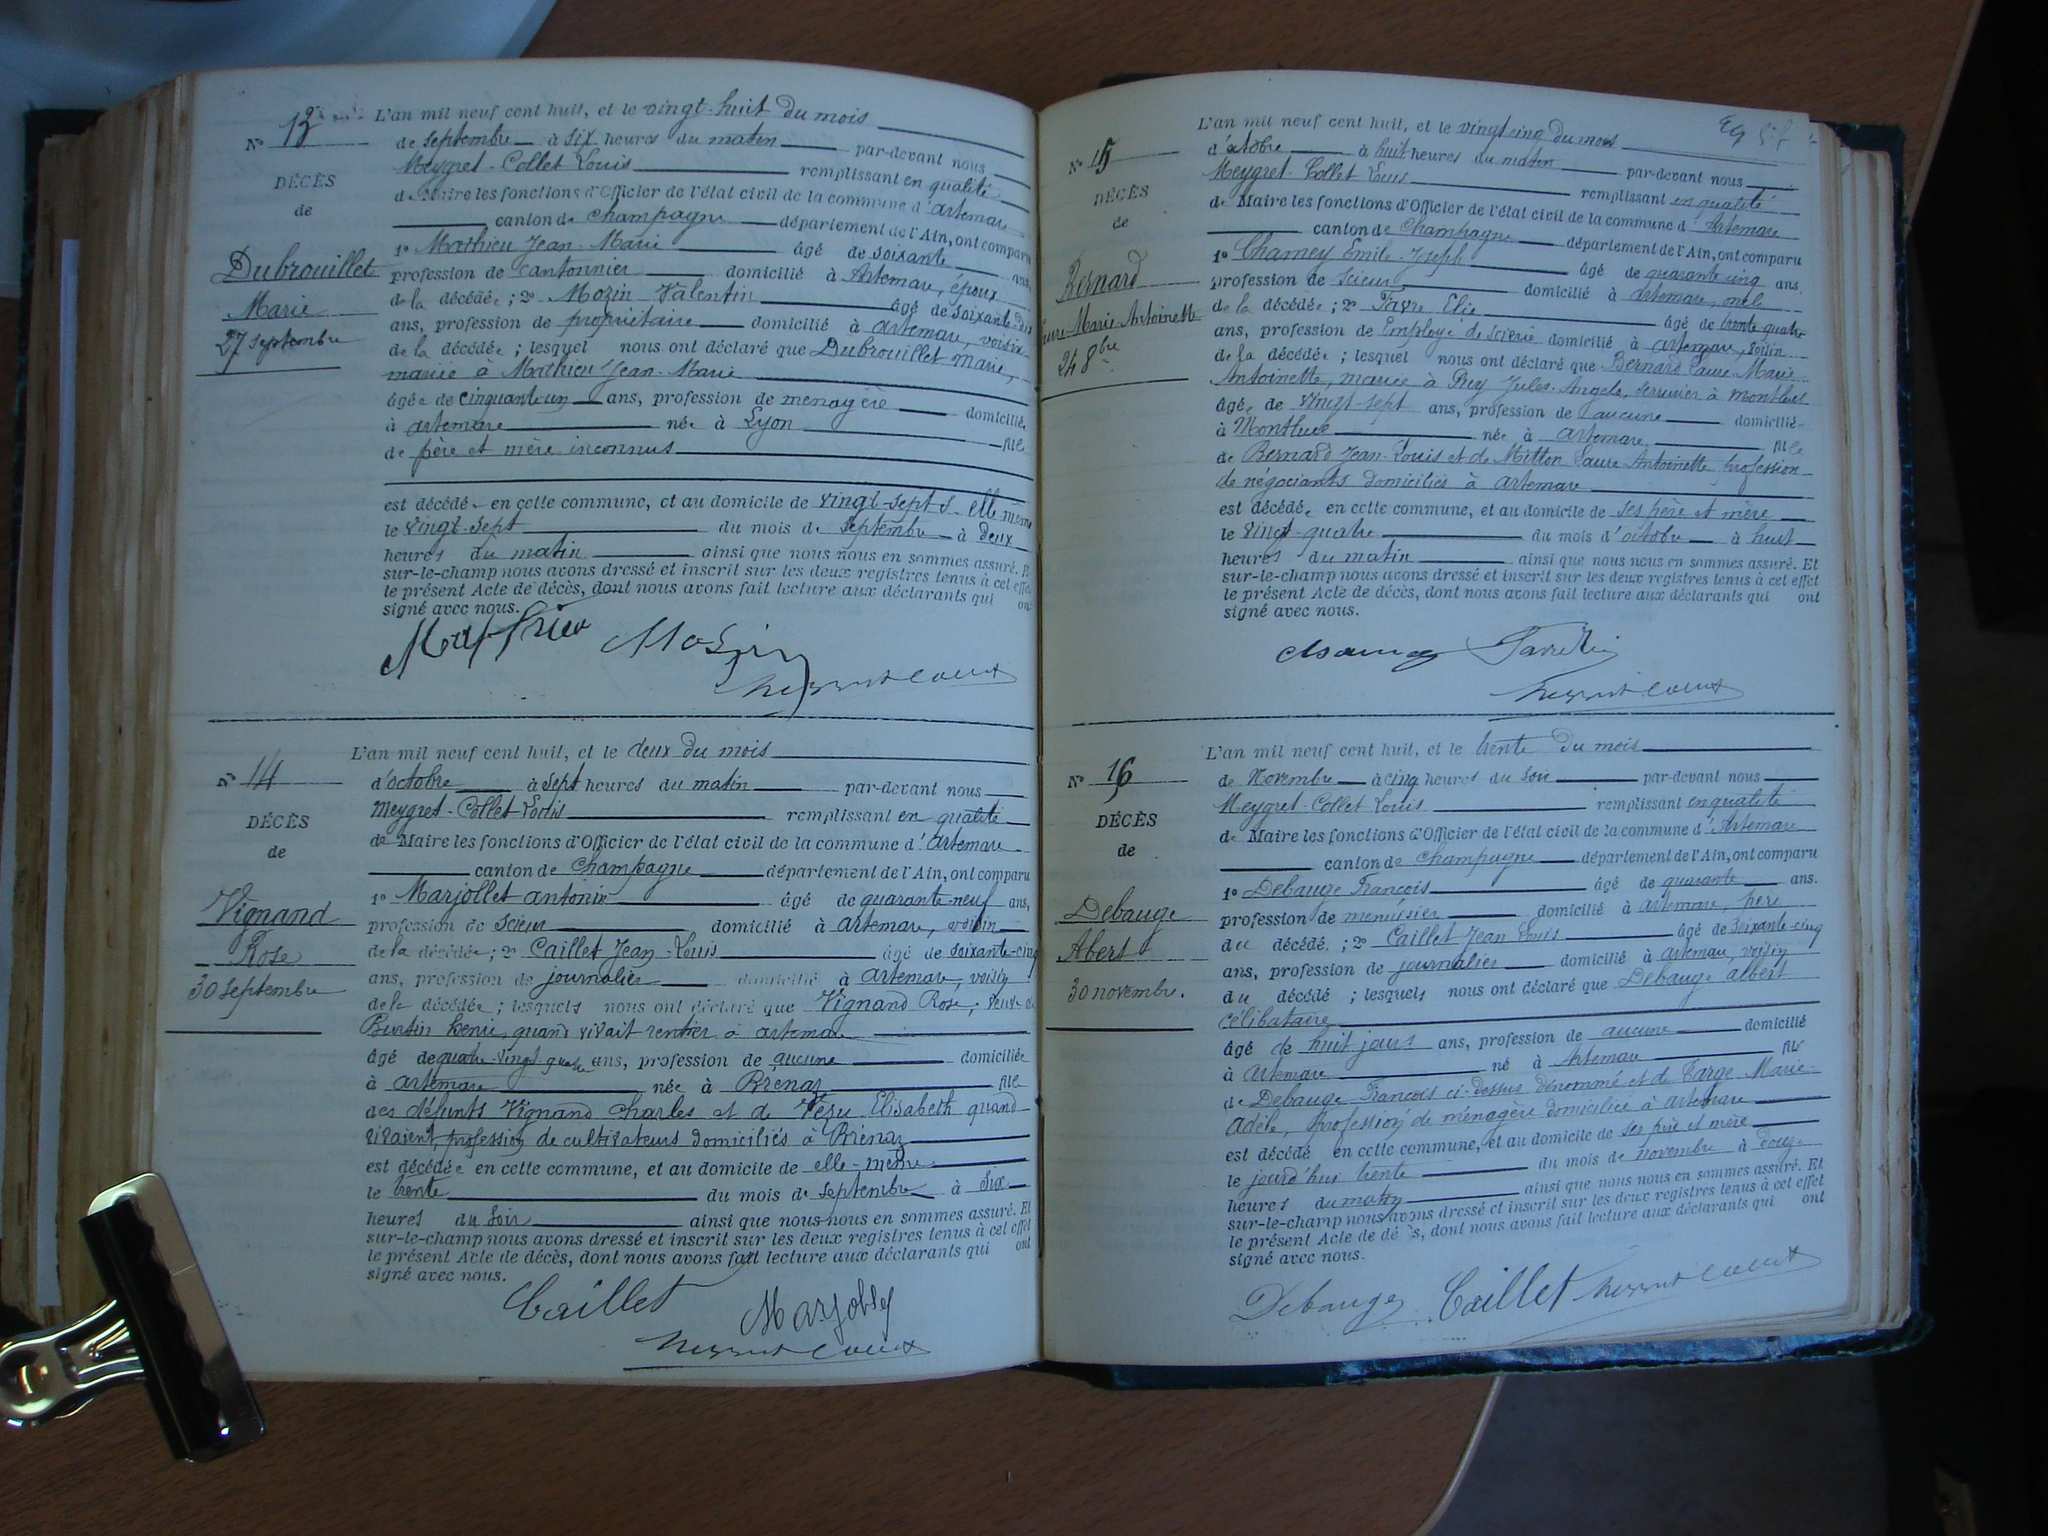 L'an mil neuf cent huit, et le vingt-huit du mois
N° 13
de septembre à six heures du matin par-devant nous
Meygret-Collet Louis remplissant en qualité
DÉCÈS
de Maire les fonctions d'Officier de l'état civil de la commune d'Artemare
de
canton de Champagne département de l'Ain, ont comparu
1° Mathieu Jean-Marie âgé de soixante ans,
Dubrouillet
profession de cantonnier domicilié à Artemare, époux
Marie
de la décédée ; 2° Mozin Valentin âgé de soixante-dix
27 septembre
ans, profession de propriétaire domicilié à artemare, voisin
de la décédée ; lesquel nous ont déclaré que Dubrouillet Marie,
mariée à Mathieu Jean-Marie
âgée de cinquante un ans, profession de ménagère domiciliée
à artemare née à Lyon fille
de père et mère inconnus
est décédée en cette commune, et au domicile de elle-même
le vingt-sept du mois de septembre à deux
heures du matin ainsi que nous nous en sommes assuré. Et
sur-le-champ nous avons dressé et inscrit sur les deux registres tenus à cet effet
le présent Acte de décès, dont nous avons fait lecture aux déclarants qui ont
signé avec nous.
Mathieu Mozin
L'an mil neuf cent huit, et le deux du mois
N° 14
d'octobre à sept heures du matin par-devant nous
Meygret-Collet Louis remplissant en qualité
DÉCÈS
de Maire les fonctions d'Officier de l'état civil de la commune d'Artemare
de
canton de Champagne département de l'Ain, ont comparu
1° Marjollet antonin âgé de quarante-neuf ans,
Vignand
profession de scieur domicilié à artemare, voisin
Rose
de la décédée ; 2° Caillet Jean-Louis âgé de soixante-cinq
30 septembre
ans, profession de journalier domicilié à artemare, voisin
de la décédée ; lesquels nous ont déclaré que Vignand Rose, veuve de
Burtin henri, quand vivait rentier à artemare
âgé de quatre-vingt quatre ans, profession de aucune domiciliée
à artemare née à Brénaz fille
des défunts Vignand Charles et de Elisabeth quand
vivaient, profession de cultivateurs domiciliés à Brénaz
est décédée en cette commune, et au domicile de elle-même
le trente du mois de septembre à six
heures du soir ainsi que nous nous en sommes assuré. Et
sur-le-champ nous avons dressé et inscrit sur les deux registres tenus à cet effet
le présent Acte de décès, dont nous avons fait lecture aux déclarants qui ont
signé avec nous.
Caillet Marjollet
L'an mil neuf cent huit, et le vingt cinq du mois
N° 15
d'octobre à huit heures du matin par-devant nous
Meygret-Collet Louis remplissant en qualité
DÉCÈS
de Maire les fonctions d'Officier de l'état civil de la commune d'Artemare
de
canton de Champagne département de l'Ain, ont comparu
1° Charney Emile Joseph âgé de quarante cinq ans.
Bernard
profession de scieur domicilié à artemare, oncle
Laure Marie Antoinette
de la décédée ; 2° Favre Elie âgé de trente quatre
24 8bre
ans, profession de Employé de scierie domicilié à artemare, voisin
de la décédée ; lesquel nous ont déclaré que Bernard Laure Marie
Antoinette, mariée à Puy Jules-Angelo, serrurier à montluel
âgée de vingt-sept ans, profession de aucune domiciliée
à Montluel née à artemare fille
de Bernard Jean-Louis et de Mitton Laure Antoinette, profession
de négociants domiciliés à artemare
est décédée en cette commune, et au domicile de ses père et mère
le vingt-quatre du mois d'octobre à huit
heures du matin ainsi que nous nous en sommes assuré. Et
sur-le-champ nous avons dressé et inscrit sur les deux registres tenus à cet effet
le présent Acte de décès, dont nous avons fait lecture aux déclarants qui ont
signé avec nous.
L'an mil neuf cent huit, et le trente du mois
N° 16
de Novembre à cinq heures du soir par-devant nous
Meygret-Collet Louis remplissant en qualité
DÉCÈS
de Maire les fonctions d'Officier de l'état civil de la commune d'Artemare
de
canton de Champagne département de l'Ain, ont comparu
1° Debauge François âgé de quarante ans.
Debauge
profession de menuisier domicilié à artemare, père
Abert
du décédé ; 2° Caillet Jean Louis âgé de soixante-cinq
30 novembre.
ans, profession de journalier domicilié à artemare, voisin
du décédé ; lesquels nous ont déclaré que Debauge albert
célibataire
âgé de huit jours ans, profession de aucune domicilié
à artemare né à Artemare fils
de Debauge François ci-dessus dénommé et de Large Marie
Adèle, profession de ménagère domiciliée à artemare
est décédé en cette commune, et au domicile de ses père et mère
le jourd'hui trente du mois de novembre à douze
heures du matin ainsi que nous nous en sommes assuré. Et
sur-le-champ nous avons dressé et inscrit sur les deux registres tenus à cet effet
le présent Acte de décès, dont nous avons fait lecture aux déclarants qui ont
signé avec nous.
Debauge Caillet